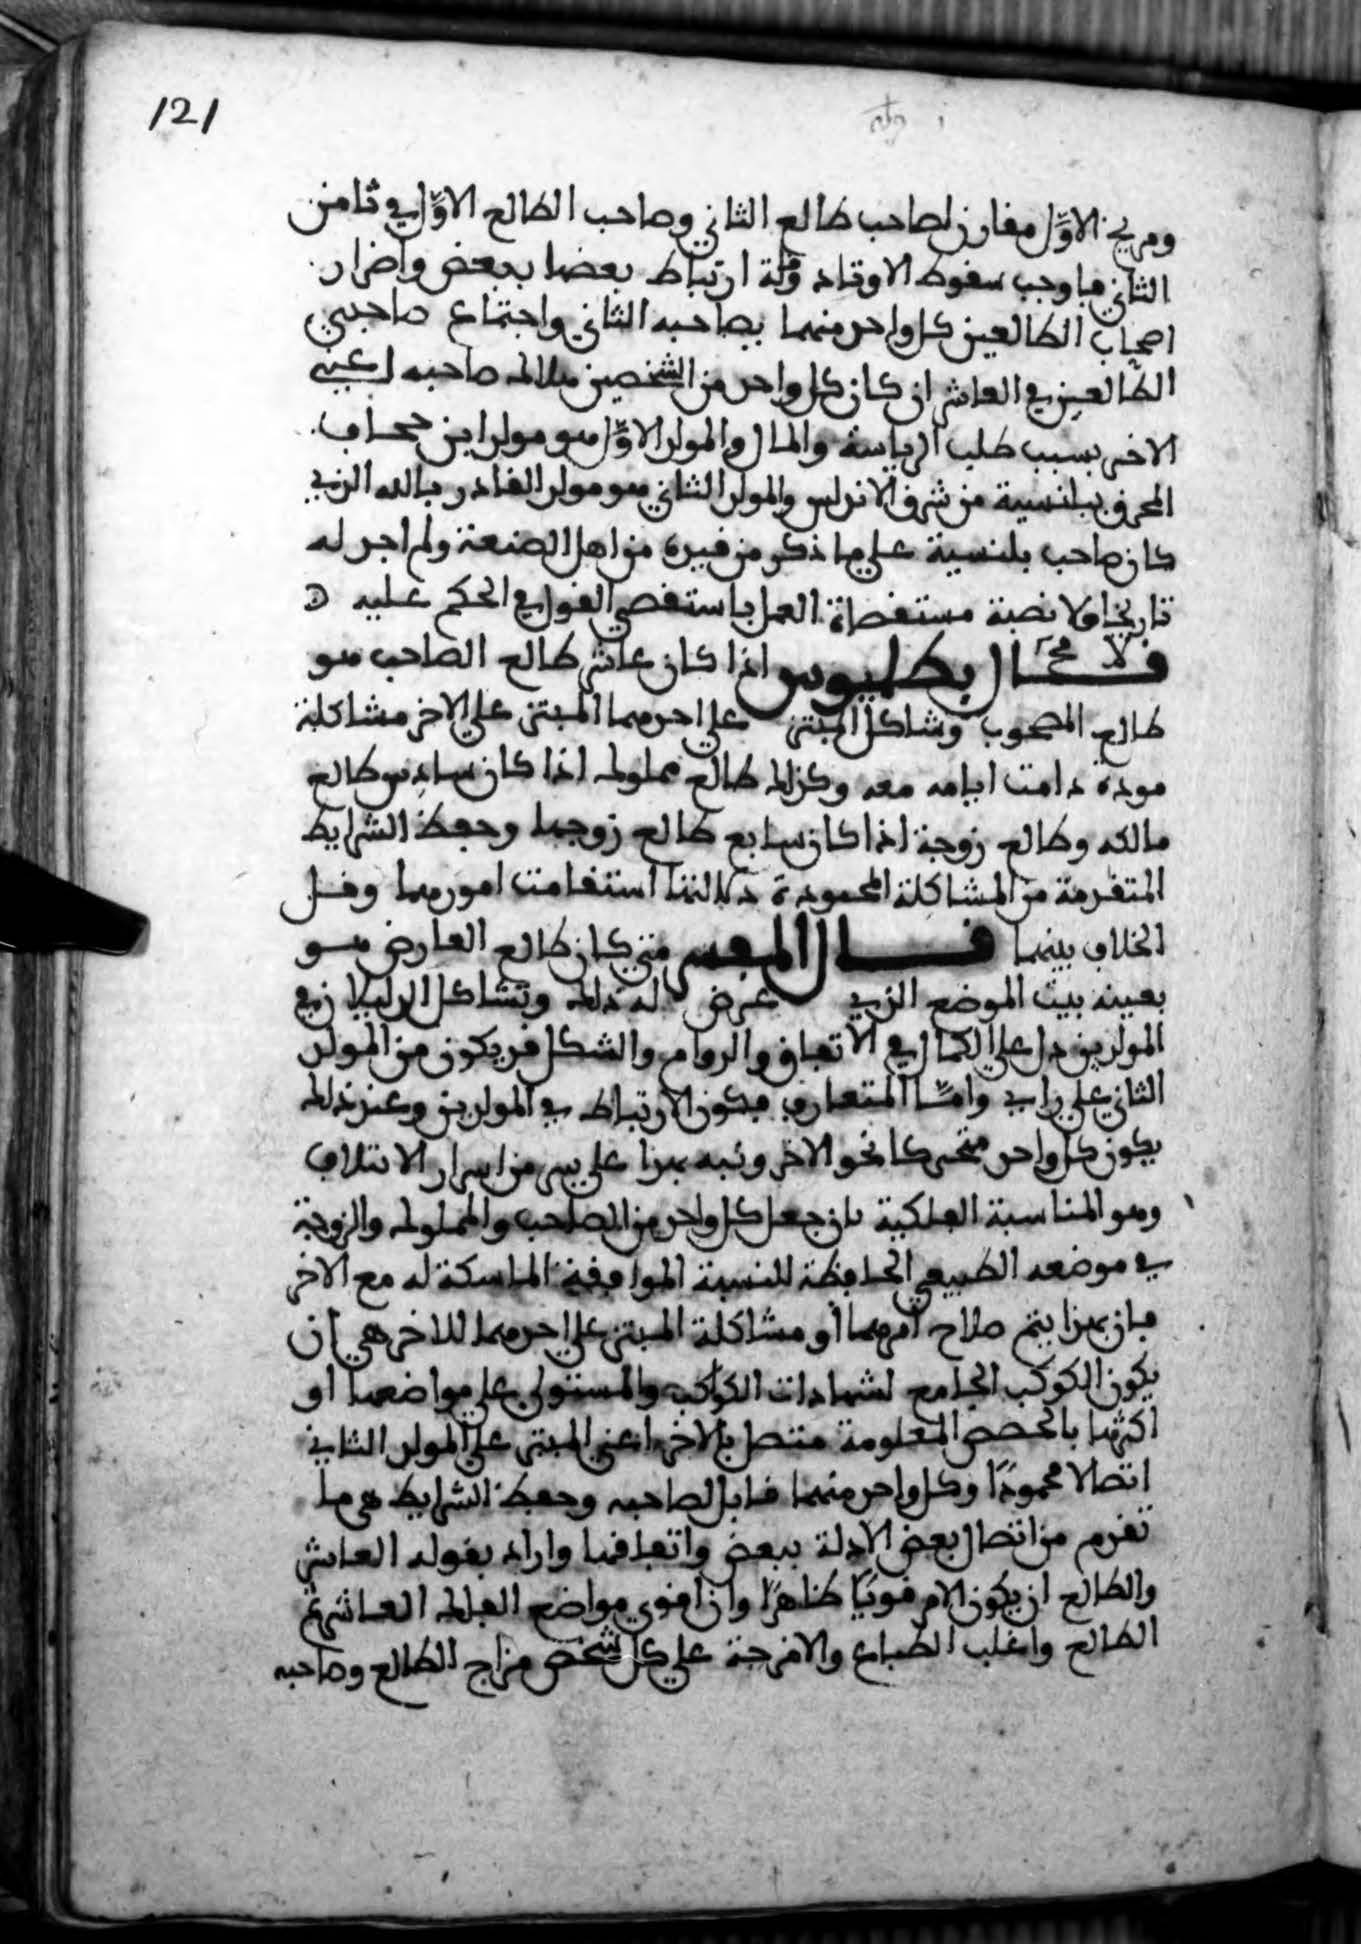 121
ومريخ الاول مقارن لصاحب طالع الثاني وصاحب الطالع الاوّل في ثامن
الثاني فاوجب سقوط الاوتاد وقلة ارتباط بعضها ببعض واضرار
اصحاب الطالعين كل واحد منهما بصاحبه الثاني واجتماع صاحبي
الطالعين في العاشر ان كان كل واحد من الشخصين هلاك صاحبه اعني
الاخر بسبب طلب الرياسة والمال والمولد الاوّل هو مولد ابن جحاف
المحرق ببلنسية من شرق الاندلس والمولد الثاني هو مولد القادر بالله الذي
كان صاحب بلنسية على ما ذكر من غيره من اهل الصنعة ولم اجد له
تاريخا ولا نصبة مستقصاة العمل باستقصي القول في الحكم عليه
قال بطليوس اذا كان عاشر طالع الصاحب هو
طالع المصحوب وشاكل المبتز على احدهما المبتز على الاخر مشاكلة
مودة دامت ايامه معه وكذلك طالع مملوك اذا كان سادس طالع
مالكه وطالع زوجة اذا كان سابع طالع زوجها وحفظ الشرايط
المتقدمة من المشاكلة المحمودة استقامت امورهما وقل
الخلاف بينهما قال المفسر متى كان طالع العارض هو
بعينه بيت الموضع الذي عرض له ذلك وتشاكل الدليلان في
المولدين دل على الكمال في الاتفاق والدوام والشكل قد يكون من المولد
الثاني على راي وامّا المتعارف فيكون الارتباط في المولدين وعند ذلك
يكون كل واحد متحركا نحو الاخر ونبه بهذا على سر من اسرار الائتلاف
وهو المناسبة الفلكية بان جعل كل واحد من الصاحب والمملوك والزوجة
في موضعه الطبيعي الحافظة للنسبة الموافقة الماسكة له مع الاخر
فبان بهذا يتم صلاح امرهما او مشاكلة المبتز على احدهما للاخر هي ان
يكون الكوكب الجامع لشهادات الكواكب والمستولي على مواضعها او
اكثرها بالحصص المعلومة متصل بالاخر اعني المبتز على المولد الثاني
اتصالا محمودًا وكل واحد منهما قابل لصاحبه وحفظ الشرايط هي ما
تقدم من اتصال بعض الادلة ببعض واتفاقها واراد بقوله العاشر
والطالع ان يكون الامر قويًا ظاهرًا وان اقوى مواضع الفلك العاشر ثم
الطالع واغلب الطباع والامزجة على كل شخص مزاج الطالع وصاحبه